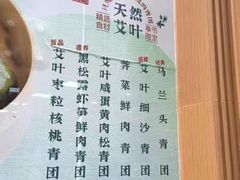 天然
艾叶
精选
食材
新品
艾叶枣粒核桃青团
推荐
黑松露虾笋鲜肉青团
艾叶咸蛋黄肉松青团
荠菜鲜肉青团
艾叶细沙青团
经典
马兰头青团